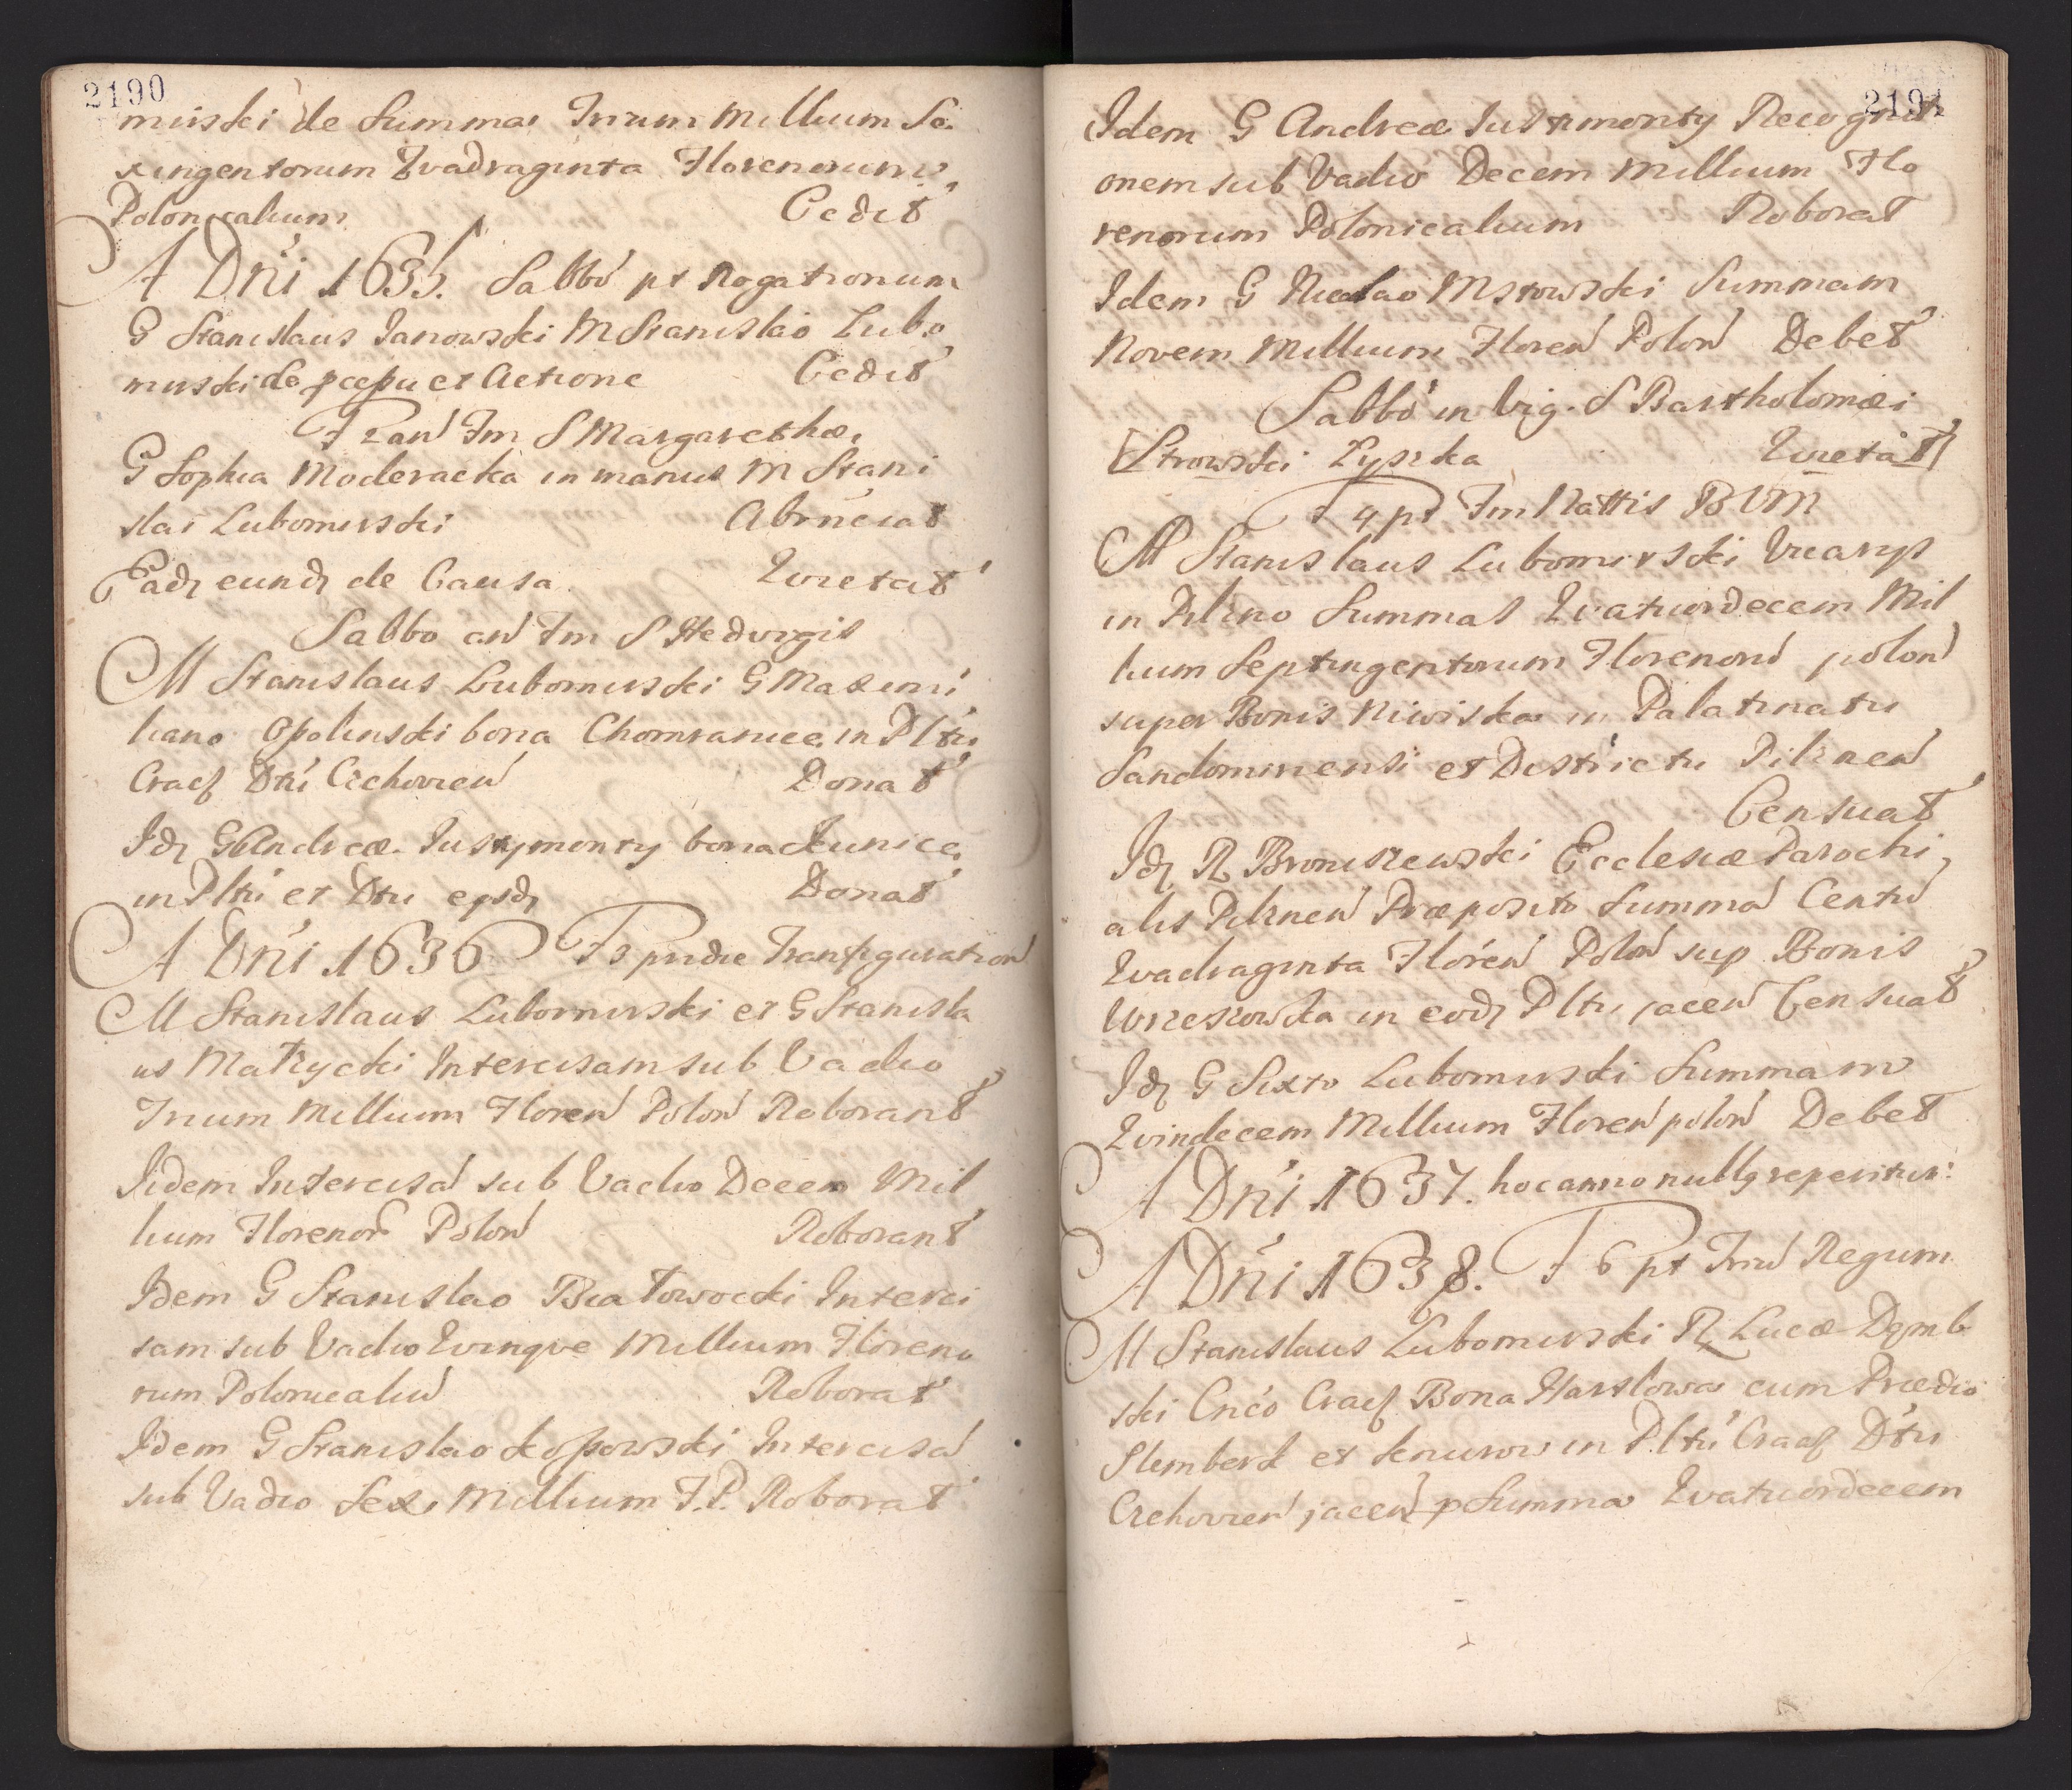 2190
mirski de Summa Trium Millium Se
xingentorum Qvadraginta Florenorum
Polonicalium Cedit
A Dni 1635. Sabbo pt Rogationum
G Stanislaus Janowski M Stanislao Lubo
mirski de et Actione Cedit
F 2 an Fm S Margarethæ
G Sophia Moderacka in manus M Stani
slai Lubomirski Abrnciat
Eadq eundq de Causa Qvietat
Sabbo an Fm S Hedvigis
M Stanislaus Lubomirski G Maximi
liano Opolinski bona Chomranice in Pltu
Cracq Dtu Czchovien Donat
Idq G Andreæ Justymonty bona Kunice
in Pltu et Dtu eqsdq Donat
A Dni 1636 F 3 pridie Transfiguration
M Stanislaus Lubomirski et G Stanisla
us Małzycki Intercisam sub Vadio
Trium Millium Floren Polon Roborant
Iidem Intercisa sub Vadio Decem Mil
lium Florenor Polon Roborant
Idem G Stanislao Białowocki Interci
sam sub Vadio Qvinqve Millium Floreno
rum Polonicaliu Roborat
Idem G Stanislao Kossowski Intercisa
sub Vadio Sex Millium F. P. Roborat
2191
Idem G Andreæ Justimonty Recogniti
onem sub Vadio Decem Millium Flo
renorum Polonicalium Roborat
Idem G Nicolao Mstowski Summam
Novem Millium Floren Polon Debet
Sabbo in Vig. S Bartholomæi
Strowski Zyszka Qvietat
F 4 pt Fm Nattis BVM
M Stanislaus Lubomirski Vicarys
in Pilzno Summas Qvatuordecem Mil
lium Septingentorum Florenoru polon
super Bonis Niwiska in Palatinatu
Sandomiriensi et Districtu Pilznen
Censuat
Idq R Broniszewski Ecclesiæ Parochi
alis Pilznen Præposito Summa Centu
Qvadraginta Floren Polon sup Bonis
Wrzeszowska in eodq Pltu jacen Censuat
Idq G Sixto Lubomirski Summam
Qvindecem Millium Floren polon Debet
A Dni 1637. hoc anno nullq reperitur:
A Dni 1638. F 6 pt Triu Regum
M Stanislaus Lubomirski R Lucæ Dąmb
ski Cnco Cracq Bona Harslowa cum Prædio
Slemberk et Knurow in Pltu Cracq Dtu
Czchovien jacen p Summa Qvatuordecem